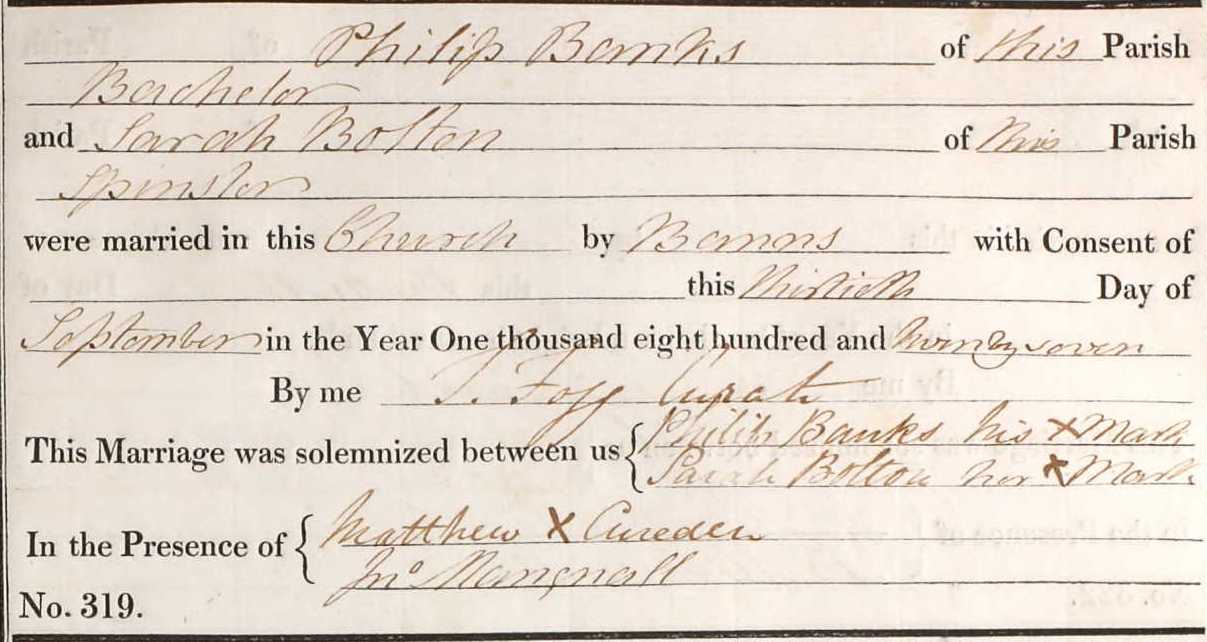 Philip Banks of this Parish
Bachelor
and Sarah Bolton of this Parish
Spinster
were married in this Church by Banns with Consent of
this thirtieth Day of
September in the Year One thousand eight hundred and twenty seven
By me T. Fogg Curate
This Marriage was solemnized between us { Philip Banks his X Mark
Sarah Bolton her X Mark
In the Presence of { Matthew X Cureden
Jno Mangnall
No. 319.